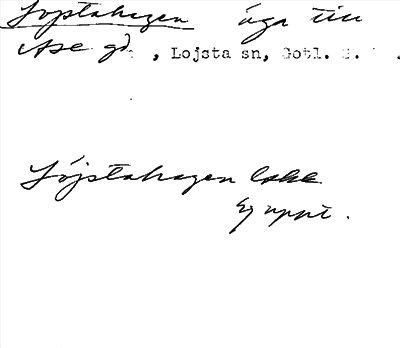 Lojstahagen äga till
Ase gd , Lojsta sn, Gotl. .
Löjstahagen
Ej uppt.